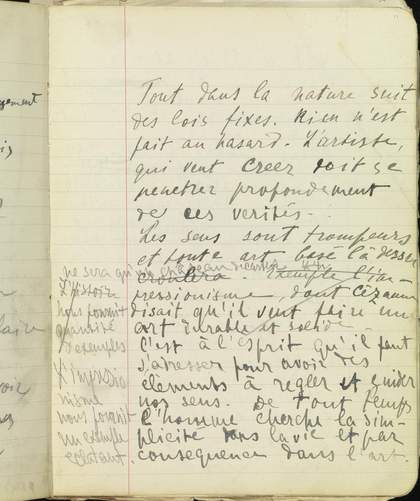 Tout dans la nature suit
des lois fixes. Rien n'est
fait au hasard. L'artiste,
qui veut creer doit se
penetrer profondement
de ces verités.
Les sens sont trompeurs
et toute art basé là dessus
ne sera qu'un chateau de cartes
croulera. Exemple l'im-
pressionisme, dont Cézanne
disait qu'il veut faire un
art durable et solide
C'est à l'esprit qu'il faut
s'adresser pour avoir des
elements à regler et guider
nos sens. De tout temps
l'homme cherche la sim-
plicité dans la vie et par
consequence dans l'art.
L'histoire
nous fournit
quantité
d'exemples
L'impressio
nisme
nous fournit
un exemple
eclatant